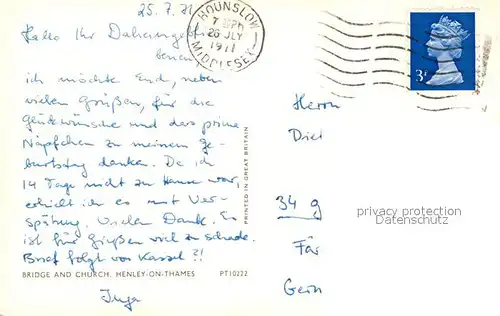 25.7.71
Hallo Ihr Daheimgeblie-
benen,
ich möchte Euch, neben
vielen Grüßen, für die
Glückwünsche und das prima
Näpfchen zu meinem Ge-
burtstag danken. Da ich
14 Tage nicht zu Hause war,
erhielt ich es mit Ver-
spätung. Vielen Dank. Es
ist für Gießen viel zu schade.
Brief folgt von Kassel?!
BRIDGE AND CHURCH, HENLEY-ON-THAMES PT10222
Inga
PRINTED IN GREAT BRITAIN
HOUNSLOW
26 JLY
1971
MIDDLESEX
3P
Herrn
Diet
34 g
privacy protection
Datenschutz
Für
Gern